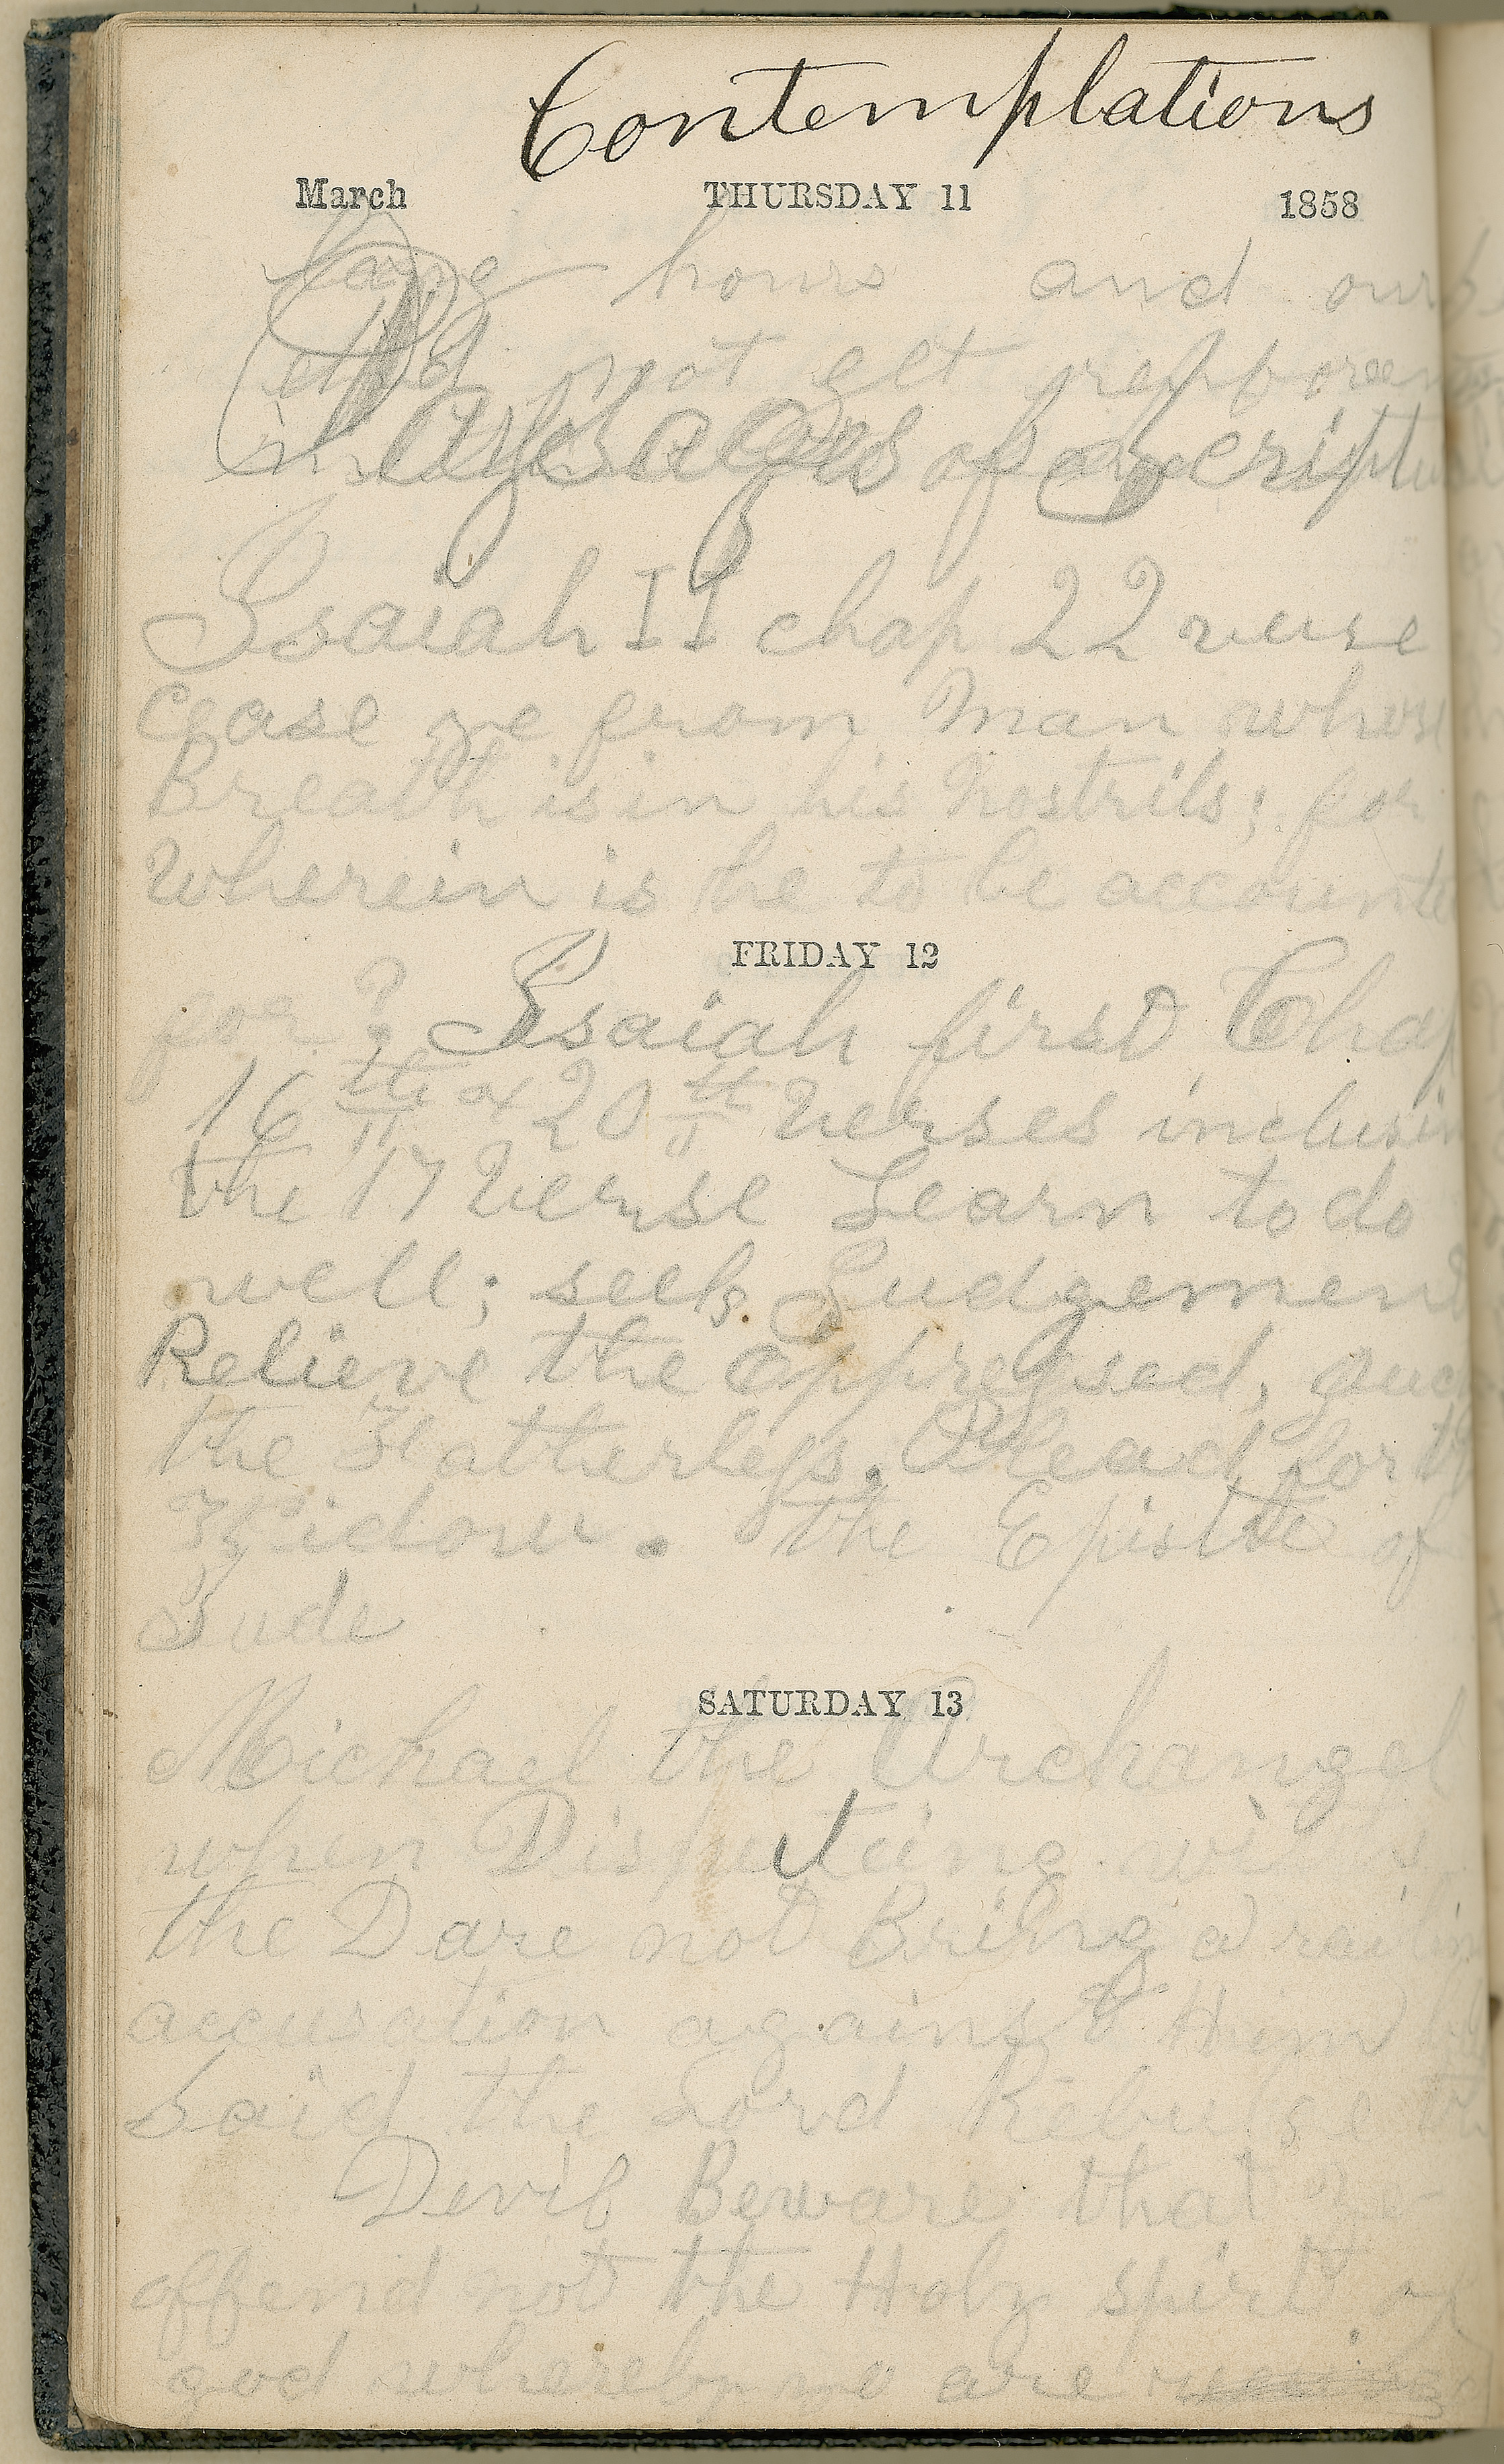 Contemplations
March THURSDAY 11 1858
long hours and our
did not get
in Passages of Scriptu
Isaiah II chap 22 verse
Cease ye from Man whose
Breath is in his Nostrils; for
Wherein is he to be accounte
FRIDAY 12
for? Isaiah first Chap
16th & 20th Verses inclusiv
the 17 Verse Learn to do
well; seek Judgement
Relieve the oppressed,
the Fatherless, Plead for th
Widow. the Epistle of
Jude
SATURDAY 13
Michael the Archangel
when Disputeing with
the Dare not Bring a railin
accusation against Him
Said the Lord Rebuke th
Devil Beware that
offend not the Holy spirit of
god whereby are